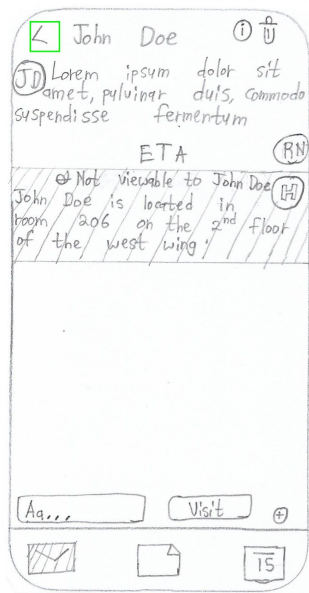 < John Doe i
JD Lorem ipsum dolor sit
amet, pulvinar duis, commodo
suspendisse fermentum
ETA RN
Not viewable to John Doe H
John Doe is located in
room 206 on the 2nd floor
of the west wing.
Aa... Visit +
15